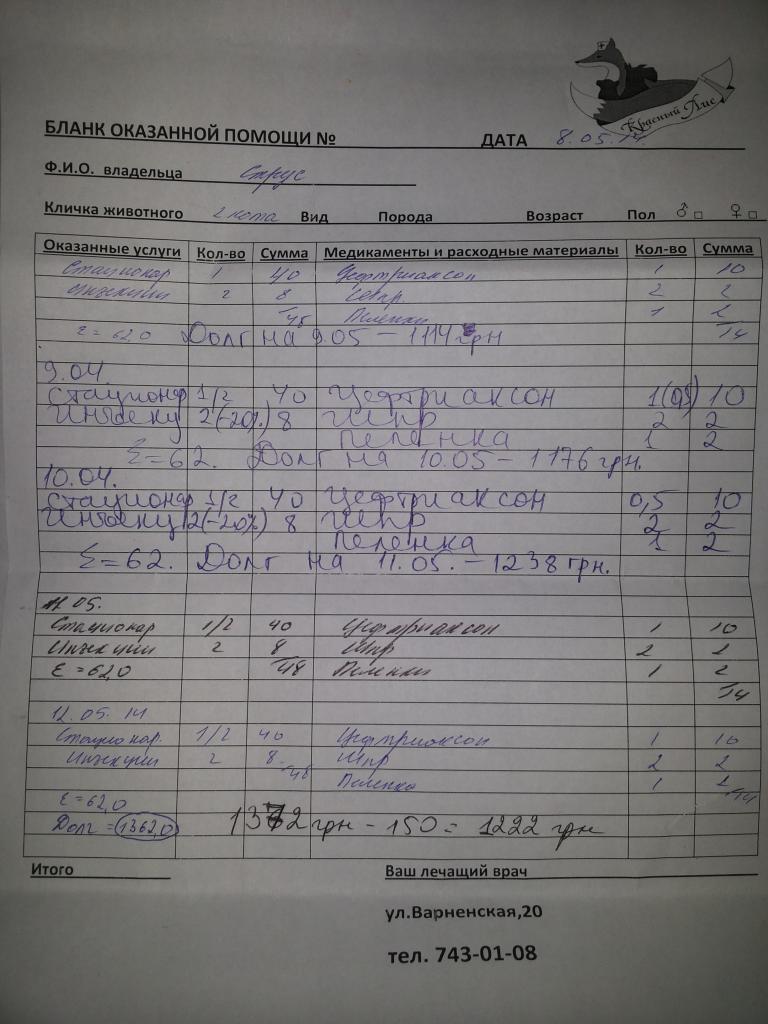 Красный Лис
БЛАНК ОКАЗАННОЙ ПОМОЩИ № ДАТА 8.05.14
Ф.И.О. владельца Струс
Кличка животного 2 кота Вид Порода Возраст Пол ♂ □ ♀ □
Оказанные услуги Кол-во Сумма Медикаменты и расходные материалы Кол-во Сумма
Стационар 1 40 Цефтриаксон 1 10
Инъекции 2 8 Шпр 2 2
/48 Пеленки 1 2
Σ = 62,0 Долг на 9.05 – 1114 грн /14
9.04.
Стационар 1/2 40 Цефтриаксон 1(0,5) 10
Инъекц 2(-20%) 8 Шпр 2 2
Пеленка 1 2
Σ=62. Долг на 10.05 – 1176 грн.
10.04.
Стационар 1/2 40 Цефтриаксон 0,5 10
Инъекц 2(-20%) 8 Шпр 2 2
Пеленка 1 2
Σ=62. Долг на 11.05. – 1238 грн.
11.05.
Стационар 1/2 40 Цефтриаксон 1 10
Инъекции 2 8 Шпр 2 2
Σ = 62,0 /48 Пеленки 1 2
/14
12.05.14
Стационар. 1/2 40 Цефтриаксон 1 10
Инъекции 2 8 /48 Шпр 2 2
Пеленка 1 2 /14
Σ = 62,0
Долг = 1362,0 1372 грн – 150 = 1222 грн
Итого Ваш лечащий врач
ул.Варненская,20
тел. 743-01-08